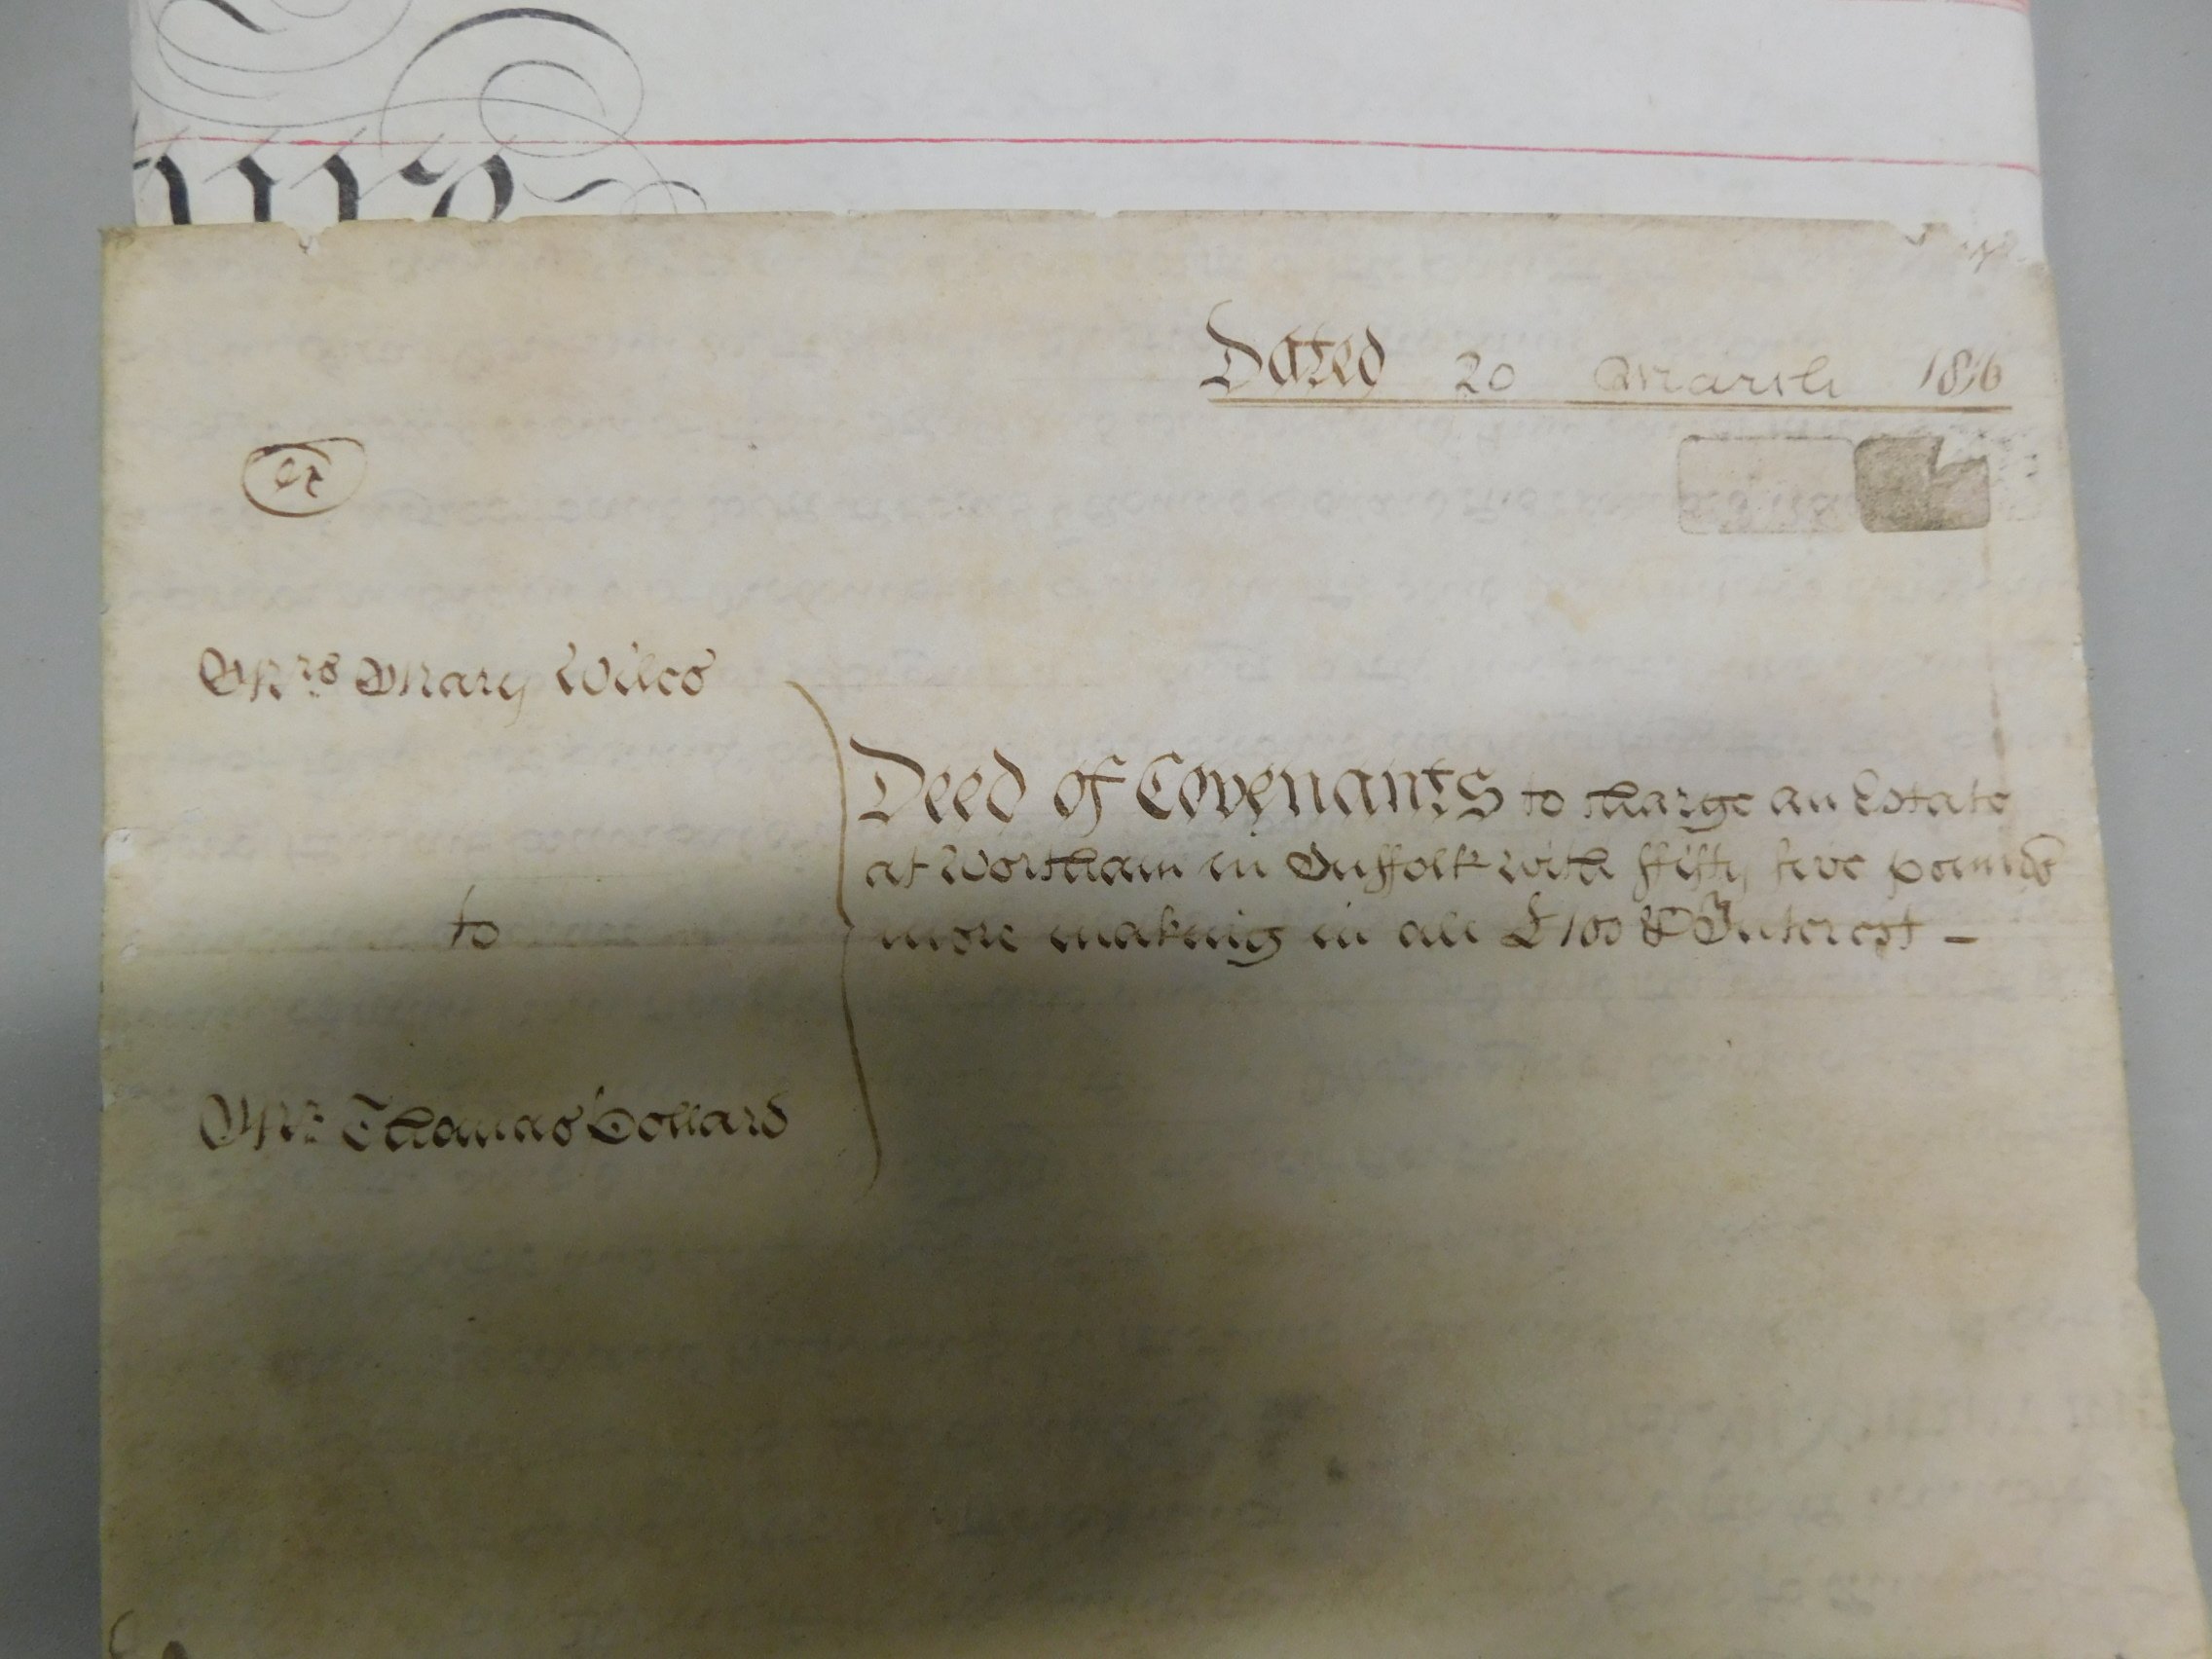 Dated 20 March 1816
Mrs Mary Wiles
Deed of Covenants to charge an Estate
at Wortham in Suffolk with ffifty five pounds
more making in all £100 & Interest -
to
Mr. Thomas Collard